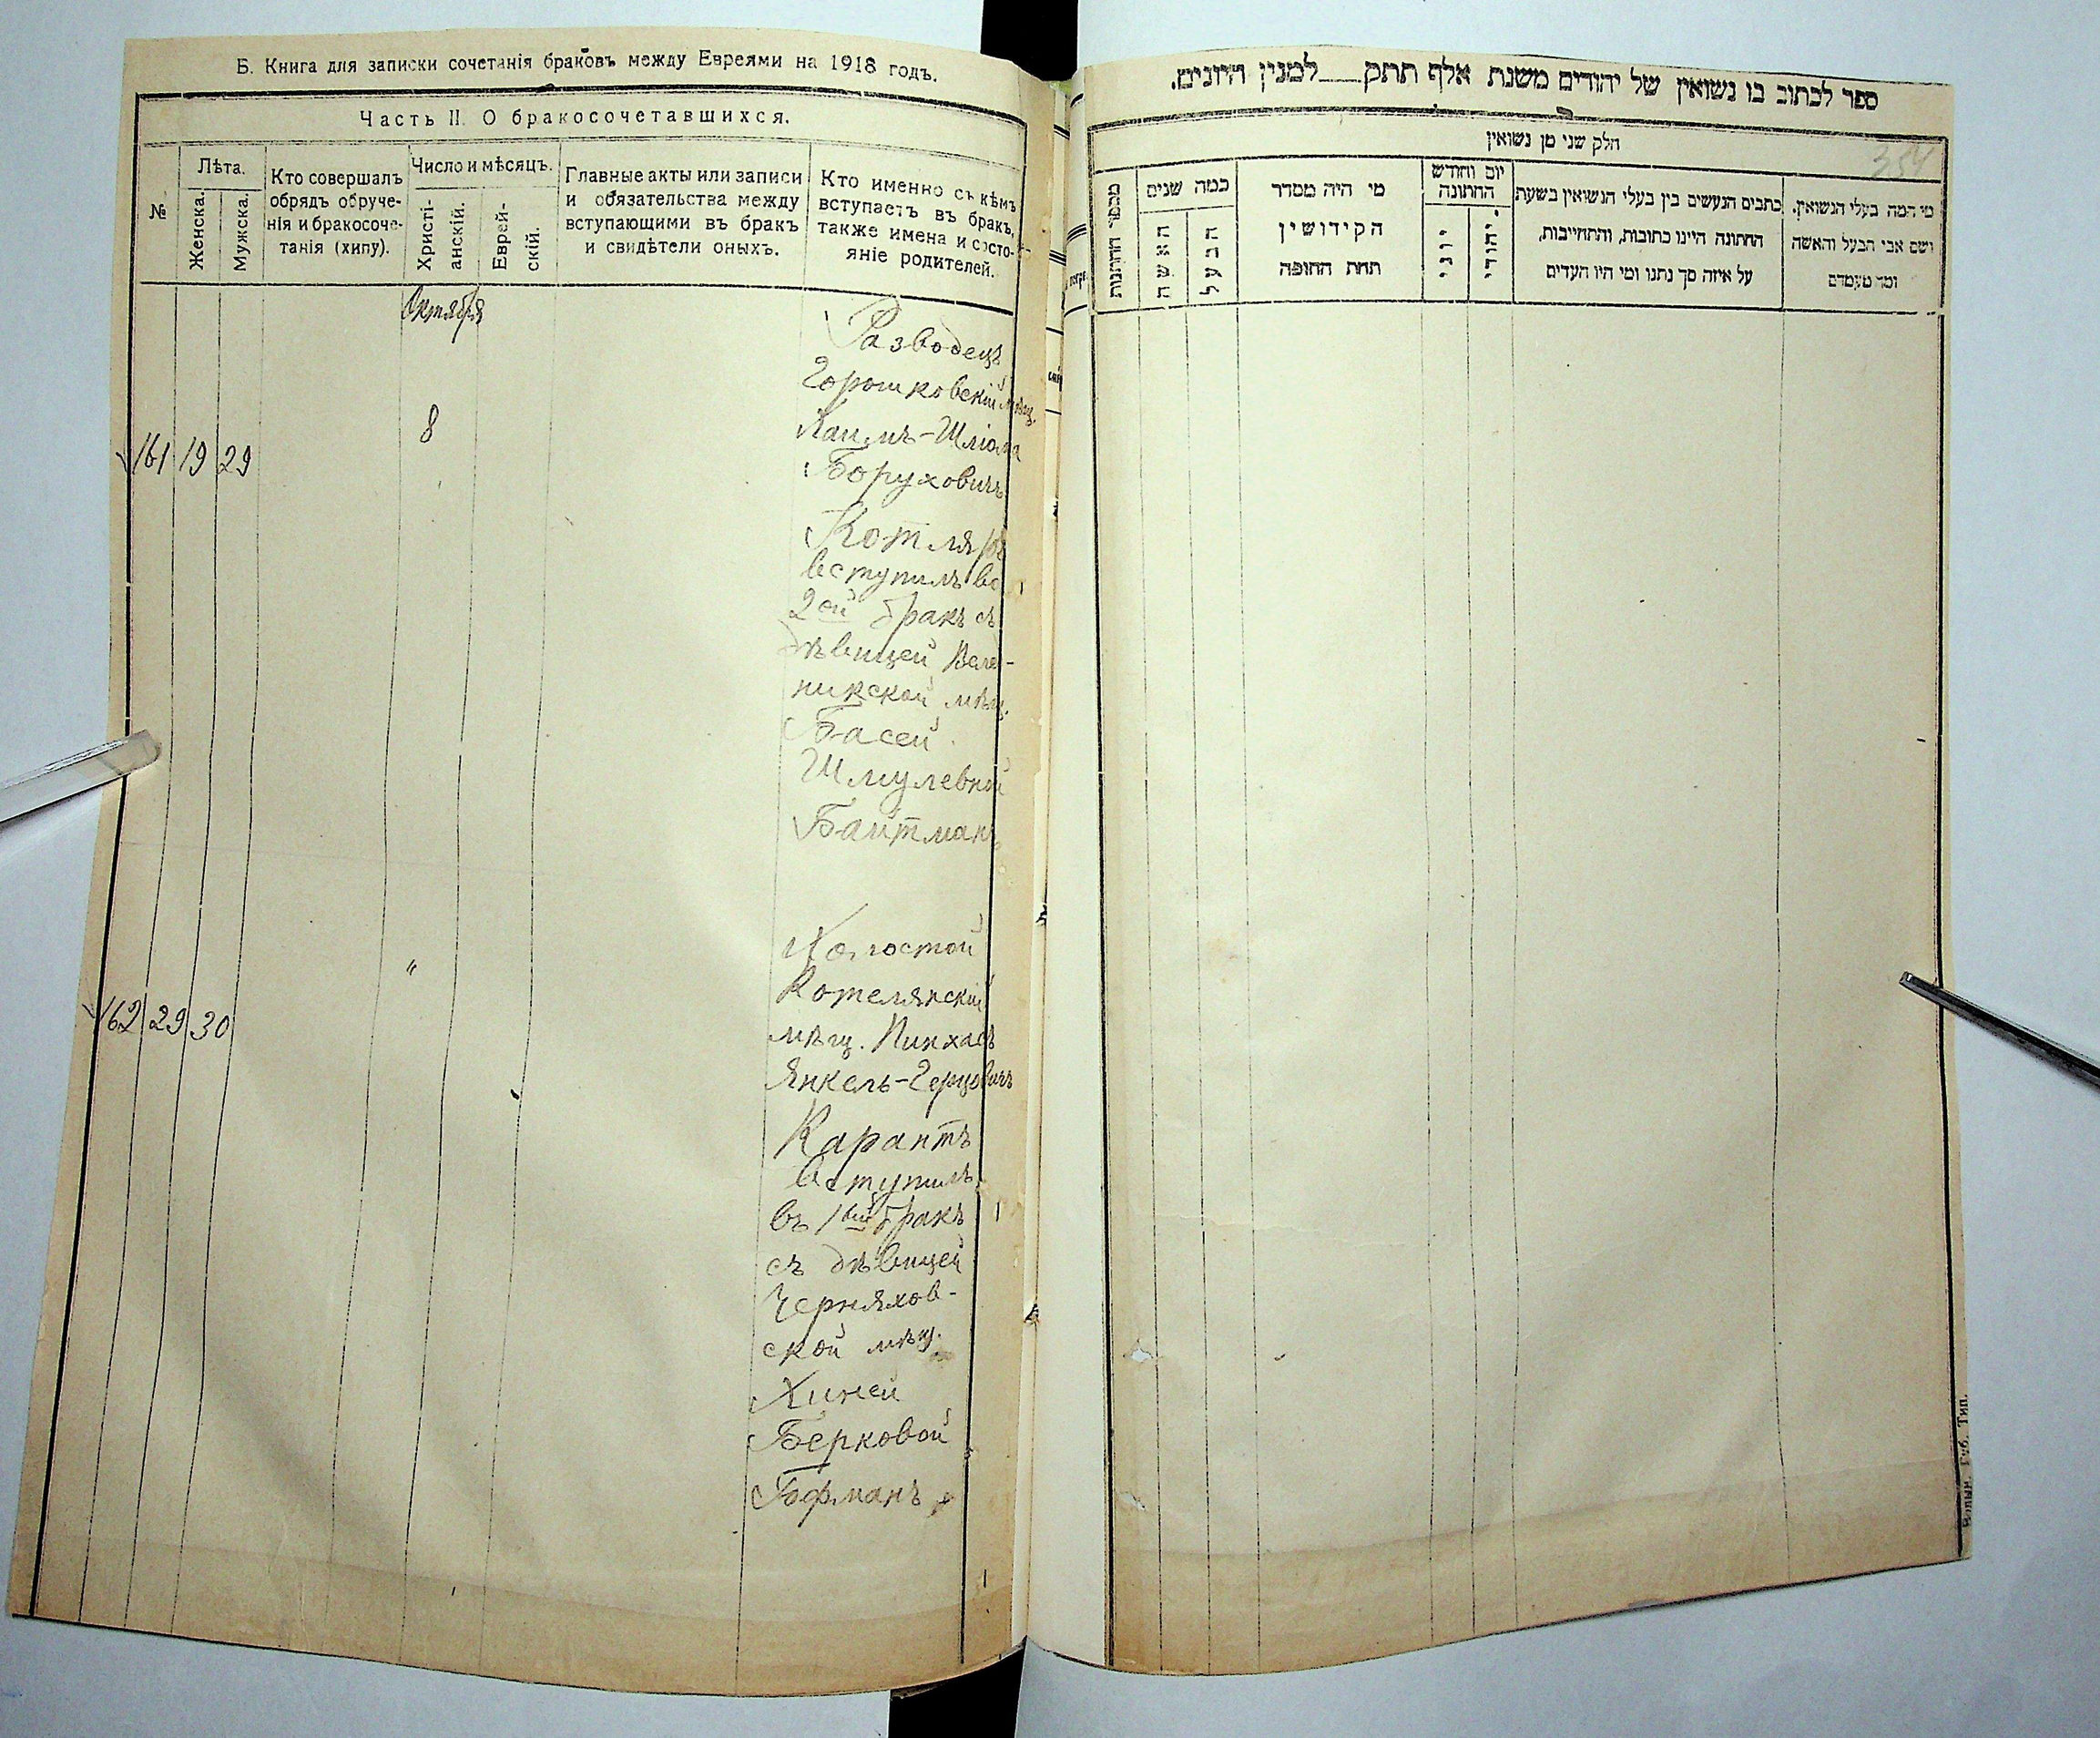 Б. Книга для записки сочетанія браковъ между Евреями на 1918 годъ.
Часть II. О бракосочетавшихся.
№
Лѣта.
Женска.
Мужска.
Кто совершалъ
обрядъ обруче-
нія и бракосоче-
танія (хипу).
Число и мѣсяцъ.
Христі-
анскій.
Еврей-
скій.
Главные акты или записи
и обязательства между
вступающими въ бракъ
и свидѣтели оныхъ.
Кто именно съ кѣмъ
вступаетъ въ бракъ,
также имена и состо-
яніе родителей.
Октября
161 19 29
8
Разводецъ
Горошковскій мѣщ.
Хаимъ-Шліома
Боруховичъ
Котляръ
вступилъ во
2ой бракъ съ
дѣвицей Велед-
никской мѣщ.
Басей
Шмулевной
Байтманъ
162 29 30
"
Холостой
Котелянскій
мѣщ. Пинхасъ
Янкель-Герцовичъ
Карантъ
вступилъ
въ 1ый бракъ
съ дѣвицей
Черняхов-
ской мѣщ.
Хиней
Берковой
Гофманъ
ספר לכתוב בו נשואין של יהודים משנת אלף תתק___למנין היונים.
חלק שני מן נשואין
354
מי המה בעלי הנשואין.
ושם אבי הבעל והאשה
ומה מעמדם
כתבים הנעשים בין בעלי הנשואין בשעת
החתונה היינו כתובות, והתחייבות,
על איזה סך נתנו ומי היו העדים
יום וחודש
החתונה
יהודי
יוני
מי היה מסדר
הקידושין
תחת החופה
כמה שנים
הבעל
האשה
מספר החתונות
Волын. Губ. Тип.